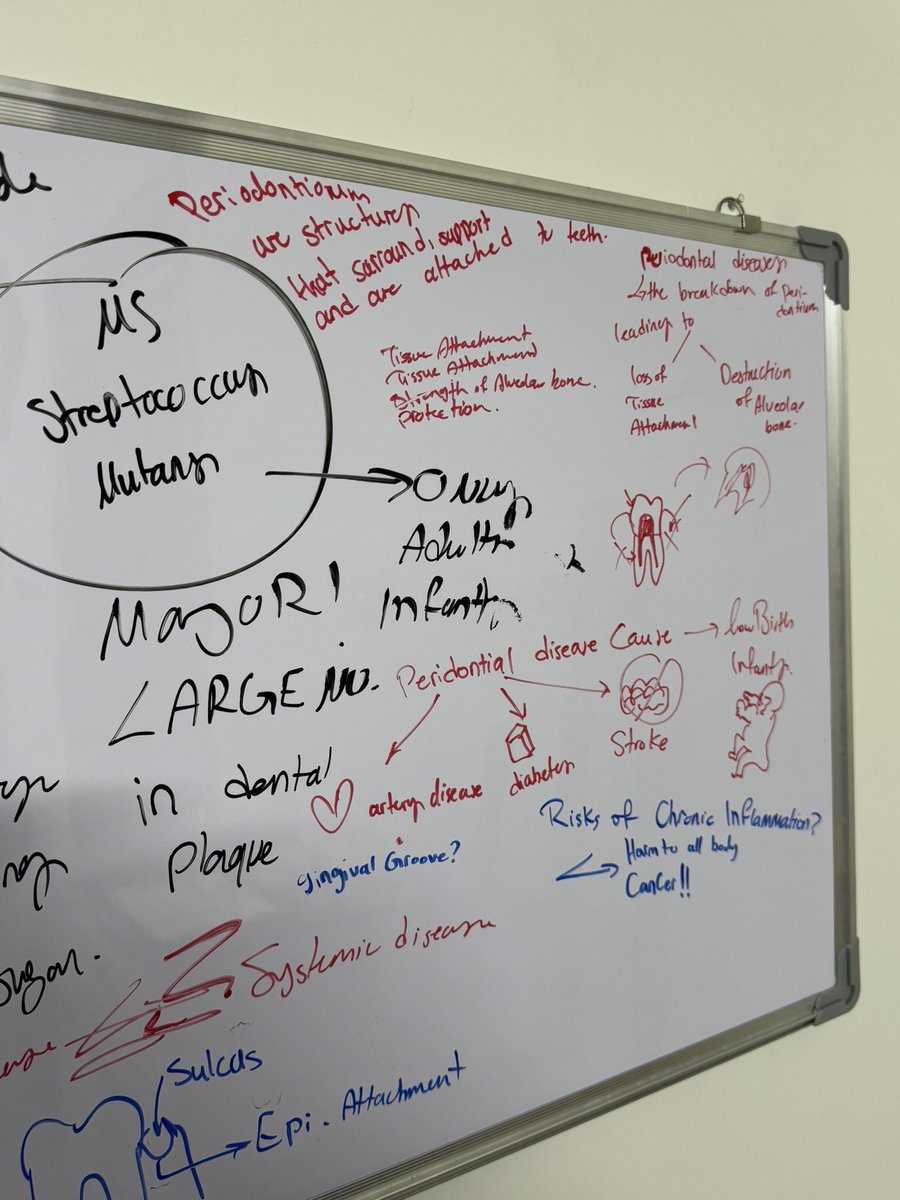 Periodontionm
are structures
that surround, support
and are attached to teeth.
Tissue Attachment
Tissue Attachmend
Strength of Alveolar bone.
protection.
Periodontal diseases
the breakdown of peri-
dontium
leading to
loss of
Tissue
Attachment
Destruction
of Alveolar
bone.
MS
Streptococcus
Mutans
Only
Adults
Infants
MajoR!
LARGE no.
in dental
Plaque
Peridontial disease Cause
low Birth
Infants.
Stroke
diabetes
artery disease
gingival Groove?
Risks of Chronic Inflammation?
Harm to all body
Cancer!!
Systemic disease
Sulcus
Epi. Attachment